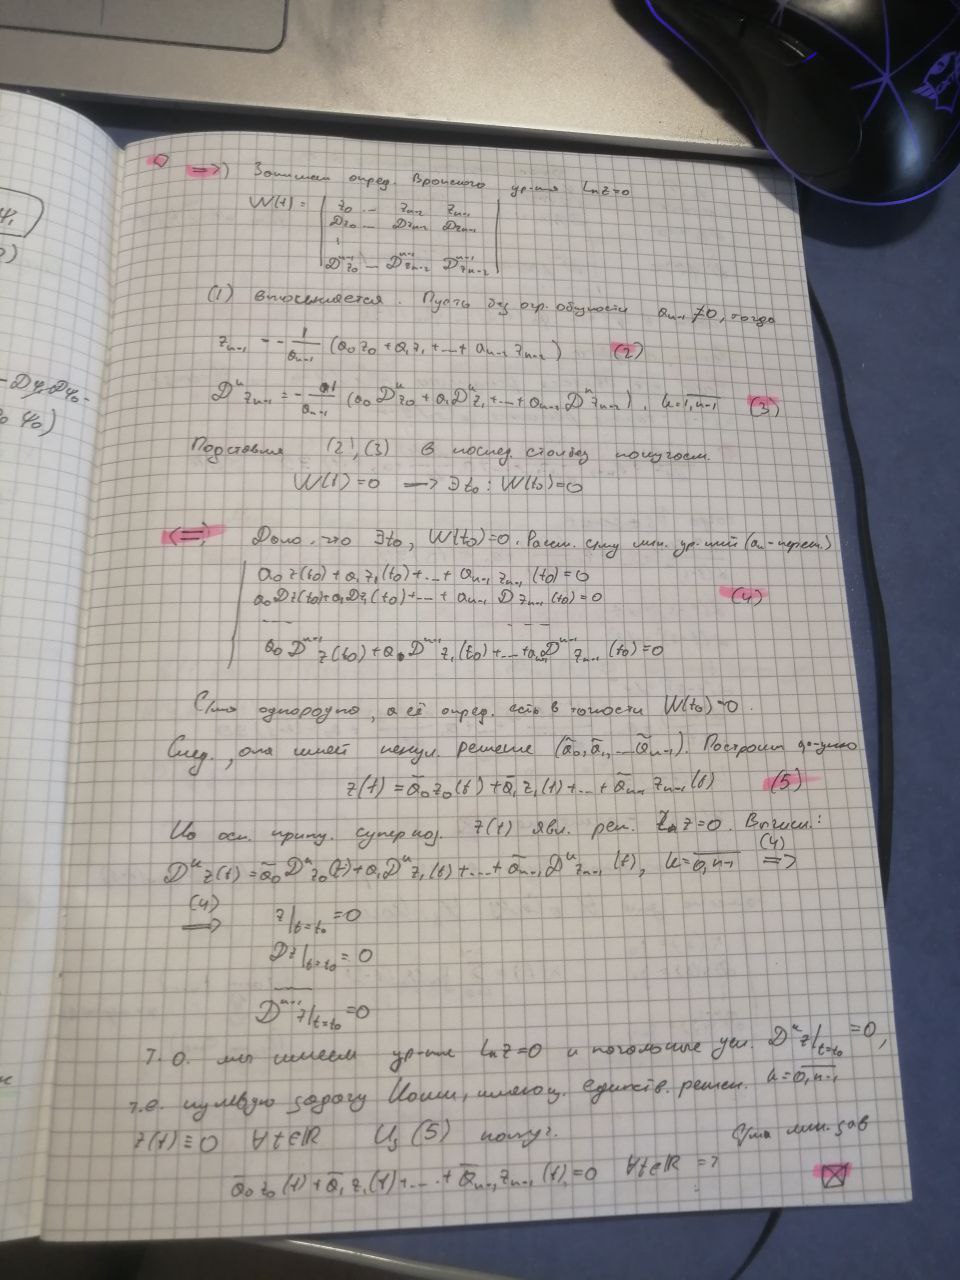 =>) Запишем опред. Вронского ур-ния Lnz=0
W(t) = | z₀ ... zₙ₋₂ zₙ₋₁
Dz₀ ... Dzₙ₋₂ Dzₙ₋₁
Dⁿ⁻¹z₀ ... Dⁿ⁻¹zₙ₋₂ Dⁿ⁻¹zₙ₋₂ |
(1) выполняется. Пусть без огр. общности aₙ₋₁ ≠0, тогда
zₙ₋₁ = - 1/aₙ₋₁ (a₀z₀ + a₁z₁ + ... + aₙ₋₂ zₙ₋₂) (2)
Dᵏzₙ₋₁ = - 1/aₙ₋₁ (a₀Dᵏz₀ + a₁Dᵏz₁ + ... + aₙ₋₂Dᵏzₙ₋₂), k=1,n-1 (3)
Подставляя (2), (3) в послед. столбец получаем.
W(t) = 0 → ∃t₀ : W(t₀)=0
<=) Дано, что ∃t₀, W(t₀)=0. Рассм. с/му лин. ур-ний (aₙ - перем.)
a₀z(t₀) + a₁z₁(t₀) + ... + aₙ₋₁zₙ₋₁(t₀) = 0
a₀Dz(t₀) + a₁Dz₁(t₀) + ... + aₙ₋₁Dzₙ₋₁(t₀) = 0 (4)
... ...
a₀Dⁿ⁻¹z(t₀) + a₁Dⁿ⁻¹z₁(t₀) + ... + aₙ₋₁Dⁿ⁻¹zₙ₋₁(t₀) = 0
С/ма однородна, а её опред. есть в точности W(t₀)=0.
След., она имеет ненул. решение (ã₀, ã₁, ... ãₙ₋₁). Построим ф-цию
z(t) = ã₀z₀(t) + ã₁z₁(t) + ... + ãₙ₋₁zₙ₋₁(t) (5)
По осн. принц. суперпоз. z(t) явл. реш. Lnz=0. Вычисл.:
Dᵏz(t) = ã₀Dᵏz₀(t) + ã₁Dᵏz₁(t) + ... + ãₙ₋₁Dᵏzₙ₋₁(t), k=0,n-1 (4) =>
(4) => z|t=t₀ = 0
Dz|t=t₀ = 0
Dⁿ⁻¹z|t=t₀ = 0
Т.о. мы имеем ур-ние Lnz=0 и начальные усл. Dᵏz|t=t₀ = 0,
т.е. нулевую задачу Коши, имеющ. единств. решен. k=0,n-1
z(t) ≡ 0 ∀t∈R Из (5) получ.
ã₀z₀(t) + ã₁z₁(t) + ... + ãₙ₋₁zₙ₋₁(t) = 0 ∀t∈R => С/ма лин. зав